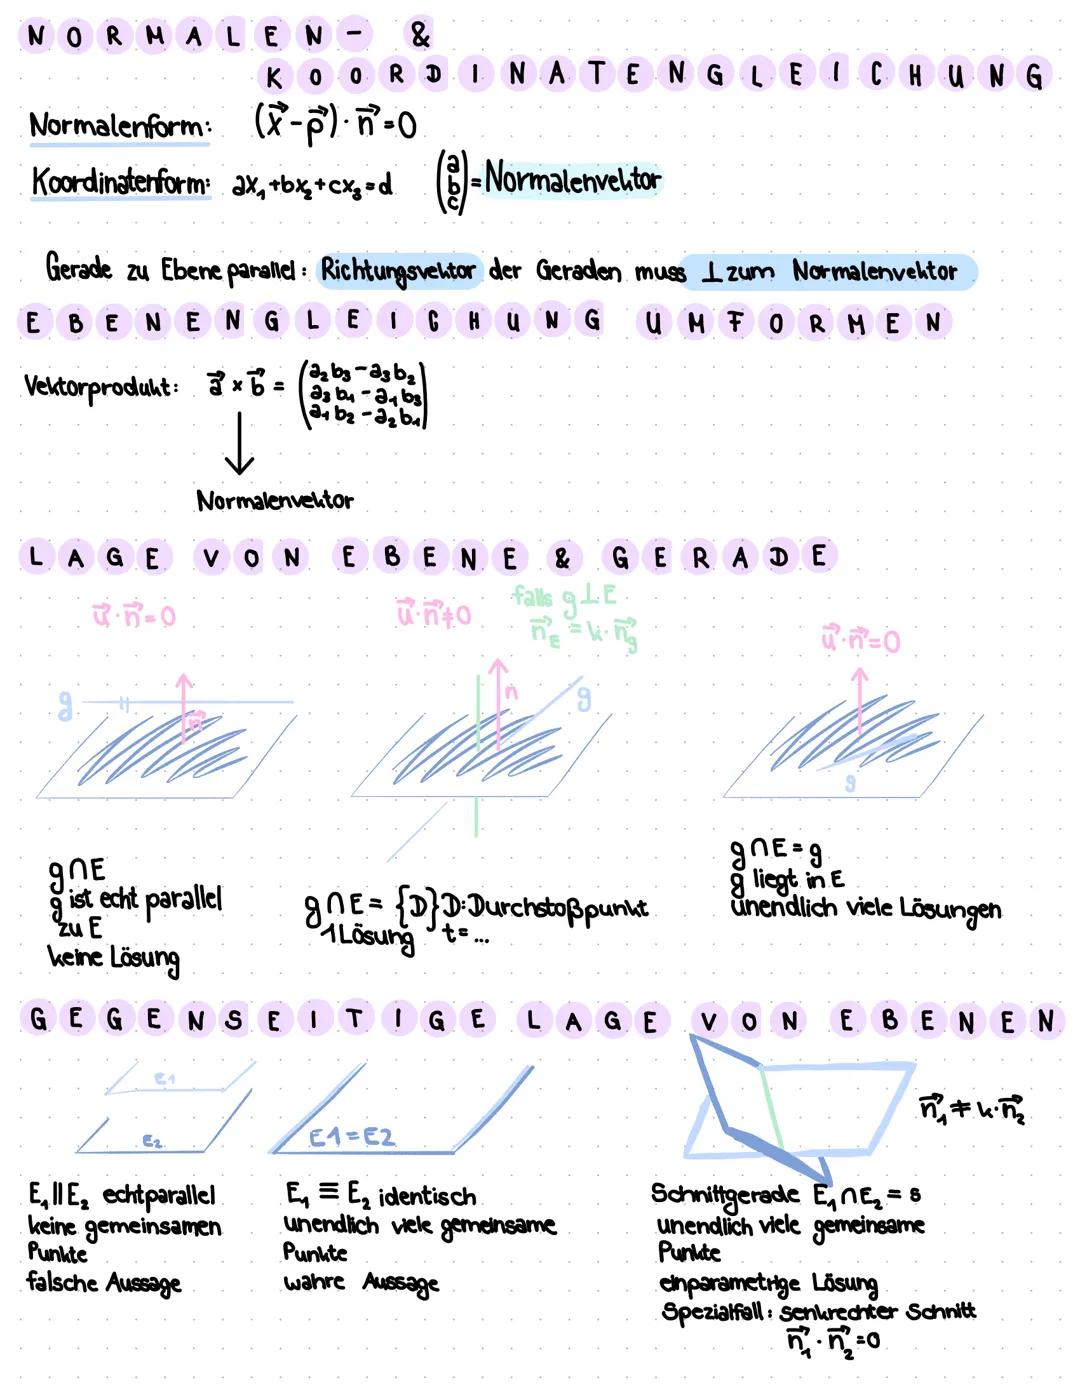 NORMALEN- &
KOORDINATENGLEICHUNG
Normalenform: (x⃗ - p⃗) · n⃗ = 0
Koordinatenform: ax₁ + bx₂ + cx₃ = d (a b c) = Normalenvektor
Gerade zu Ebene parallel: Richtungsvektor der Geraden muss ⊥ zum Normalenvektor
EBENENGLEICHUNG UMFORMEN
Vektorprodukt: a⃗ × b⃗ = (a₂b₃ - a₃b₂
a₃b₁ - a₁b₃
a₁b₂ - a₂b₁)
Normalenvektor
LAGE VON EBENE & GERADE
u⃗ · n⃗ = 0
g
n⃗
g ∩ E
g ist echt parallel
zu E
keine Lösung
u⃗ · n⃗ ≠ 0
falls g ⊥ E
n⃗_E = k · n⃗_g
n
g
g ∩ E = {D} D: Durchstoßpunkt
1 Lösung t = ...
u⃗ · n⃗ = 0
g
g ∩ E = g
g liegt in E
unendlich viele Lösungen
GEGENSEITIGE LAGE VON EBENEN
E1
E2
E₁ || E₂ echt parallel
keine gemeinsamen
Punkte
falsche Aussage
E1 = E2
E₁ ≡ E₂ identisch
unendlich viele gemeinsame
Punkte
wahre Aussage
n⃗₁ ≠ k · n⃗₂
Schnittgerade E₁ ∩ E₂ = s
unendlich viele gemeinsame
Punkte
einparametrige Lösung
Spezialfall: senkrechter Schnitt
n⃗₁ · n⃗₂ = 0